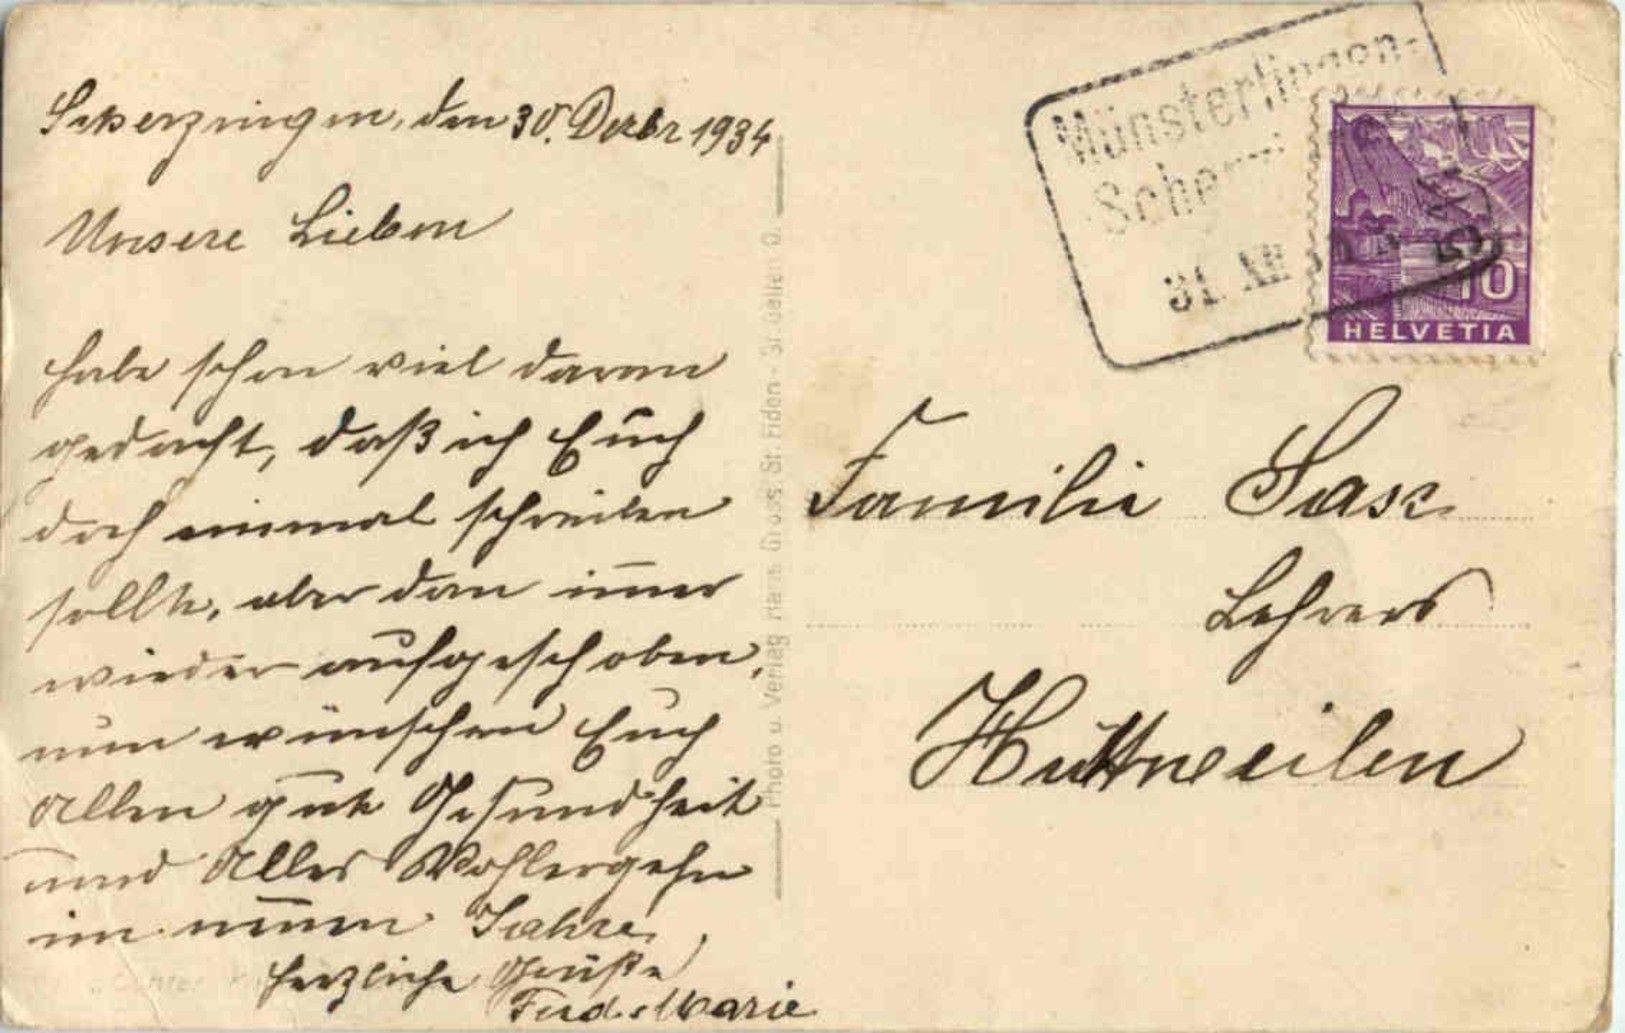 Scherzingen, den 30. Dezbr 1934
Unsere Lieben
habe schon viel daran
gedacht, daß ich Euch
doch einmal schreiben
sollte, aber dan im̅er
wieder aufgeschoben,
nun wünschen Euch
Allen gute Gesundheit
und Alles Wohlergehn
im neuen Jahre,
herzliche Grüße
Marie
Photo u. Verlag Hans Gross St. Fiden - St. Gallen O.
Münsterlingen-
Scherzi
31 XII
10
HELVETIA
Familie Sass
Lehrers
Hüttweilen